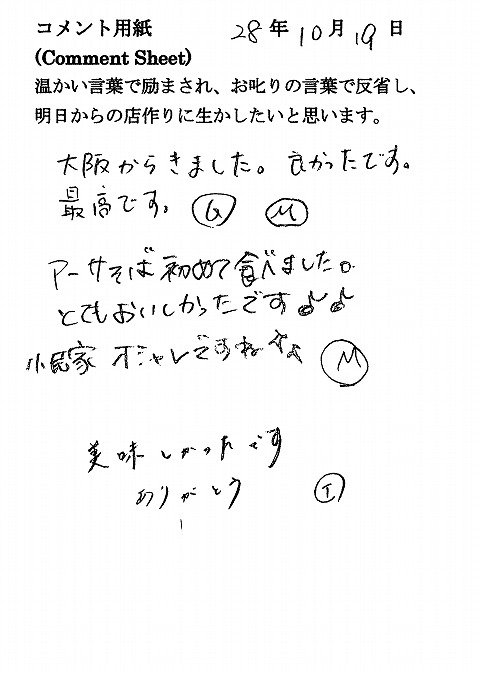 コメント用紙 28年10月19日
(Comment Sheet)
温かい言葉で励まされ、お叱りの言葉で反省し、
明日からの店作りに生かしたいと思います。
大阪からきました。良かったです。
最高です。 G M
アーサそば初めて食べました。
とてもおいしかったです♪♪
古民家 オシャレですね M
美味しかったです
ありがとう I